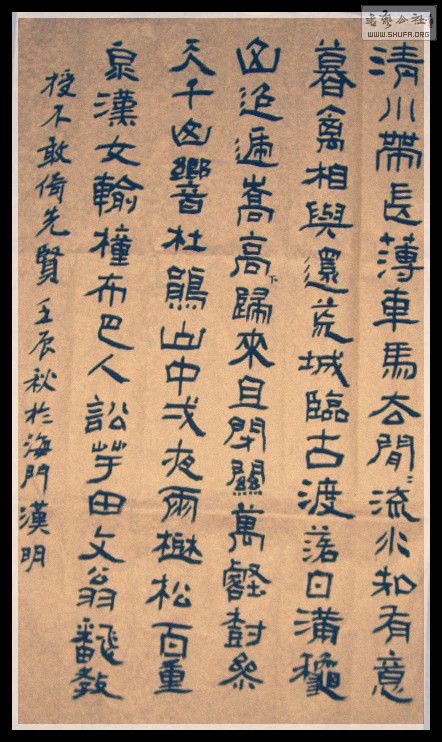 清川帶長薄車馬去閒〻流水如有意
暮禽相與還荒城臨古渡落日滿穐
山迢遞嵩高下歸來且閉關萬壑樹參
天千山響杜鵑山中弌夜雨松百重
泉漢女輸橦布巴人訟芋田文翁翻教
授不敢倚先賢壬辰秋於海門漢明
書藝公社
WWW.SHUFA.ORG